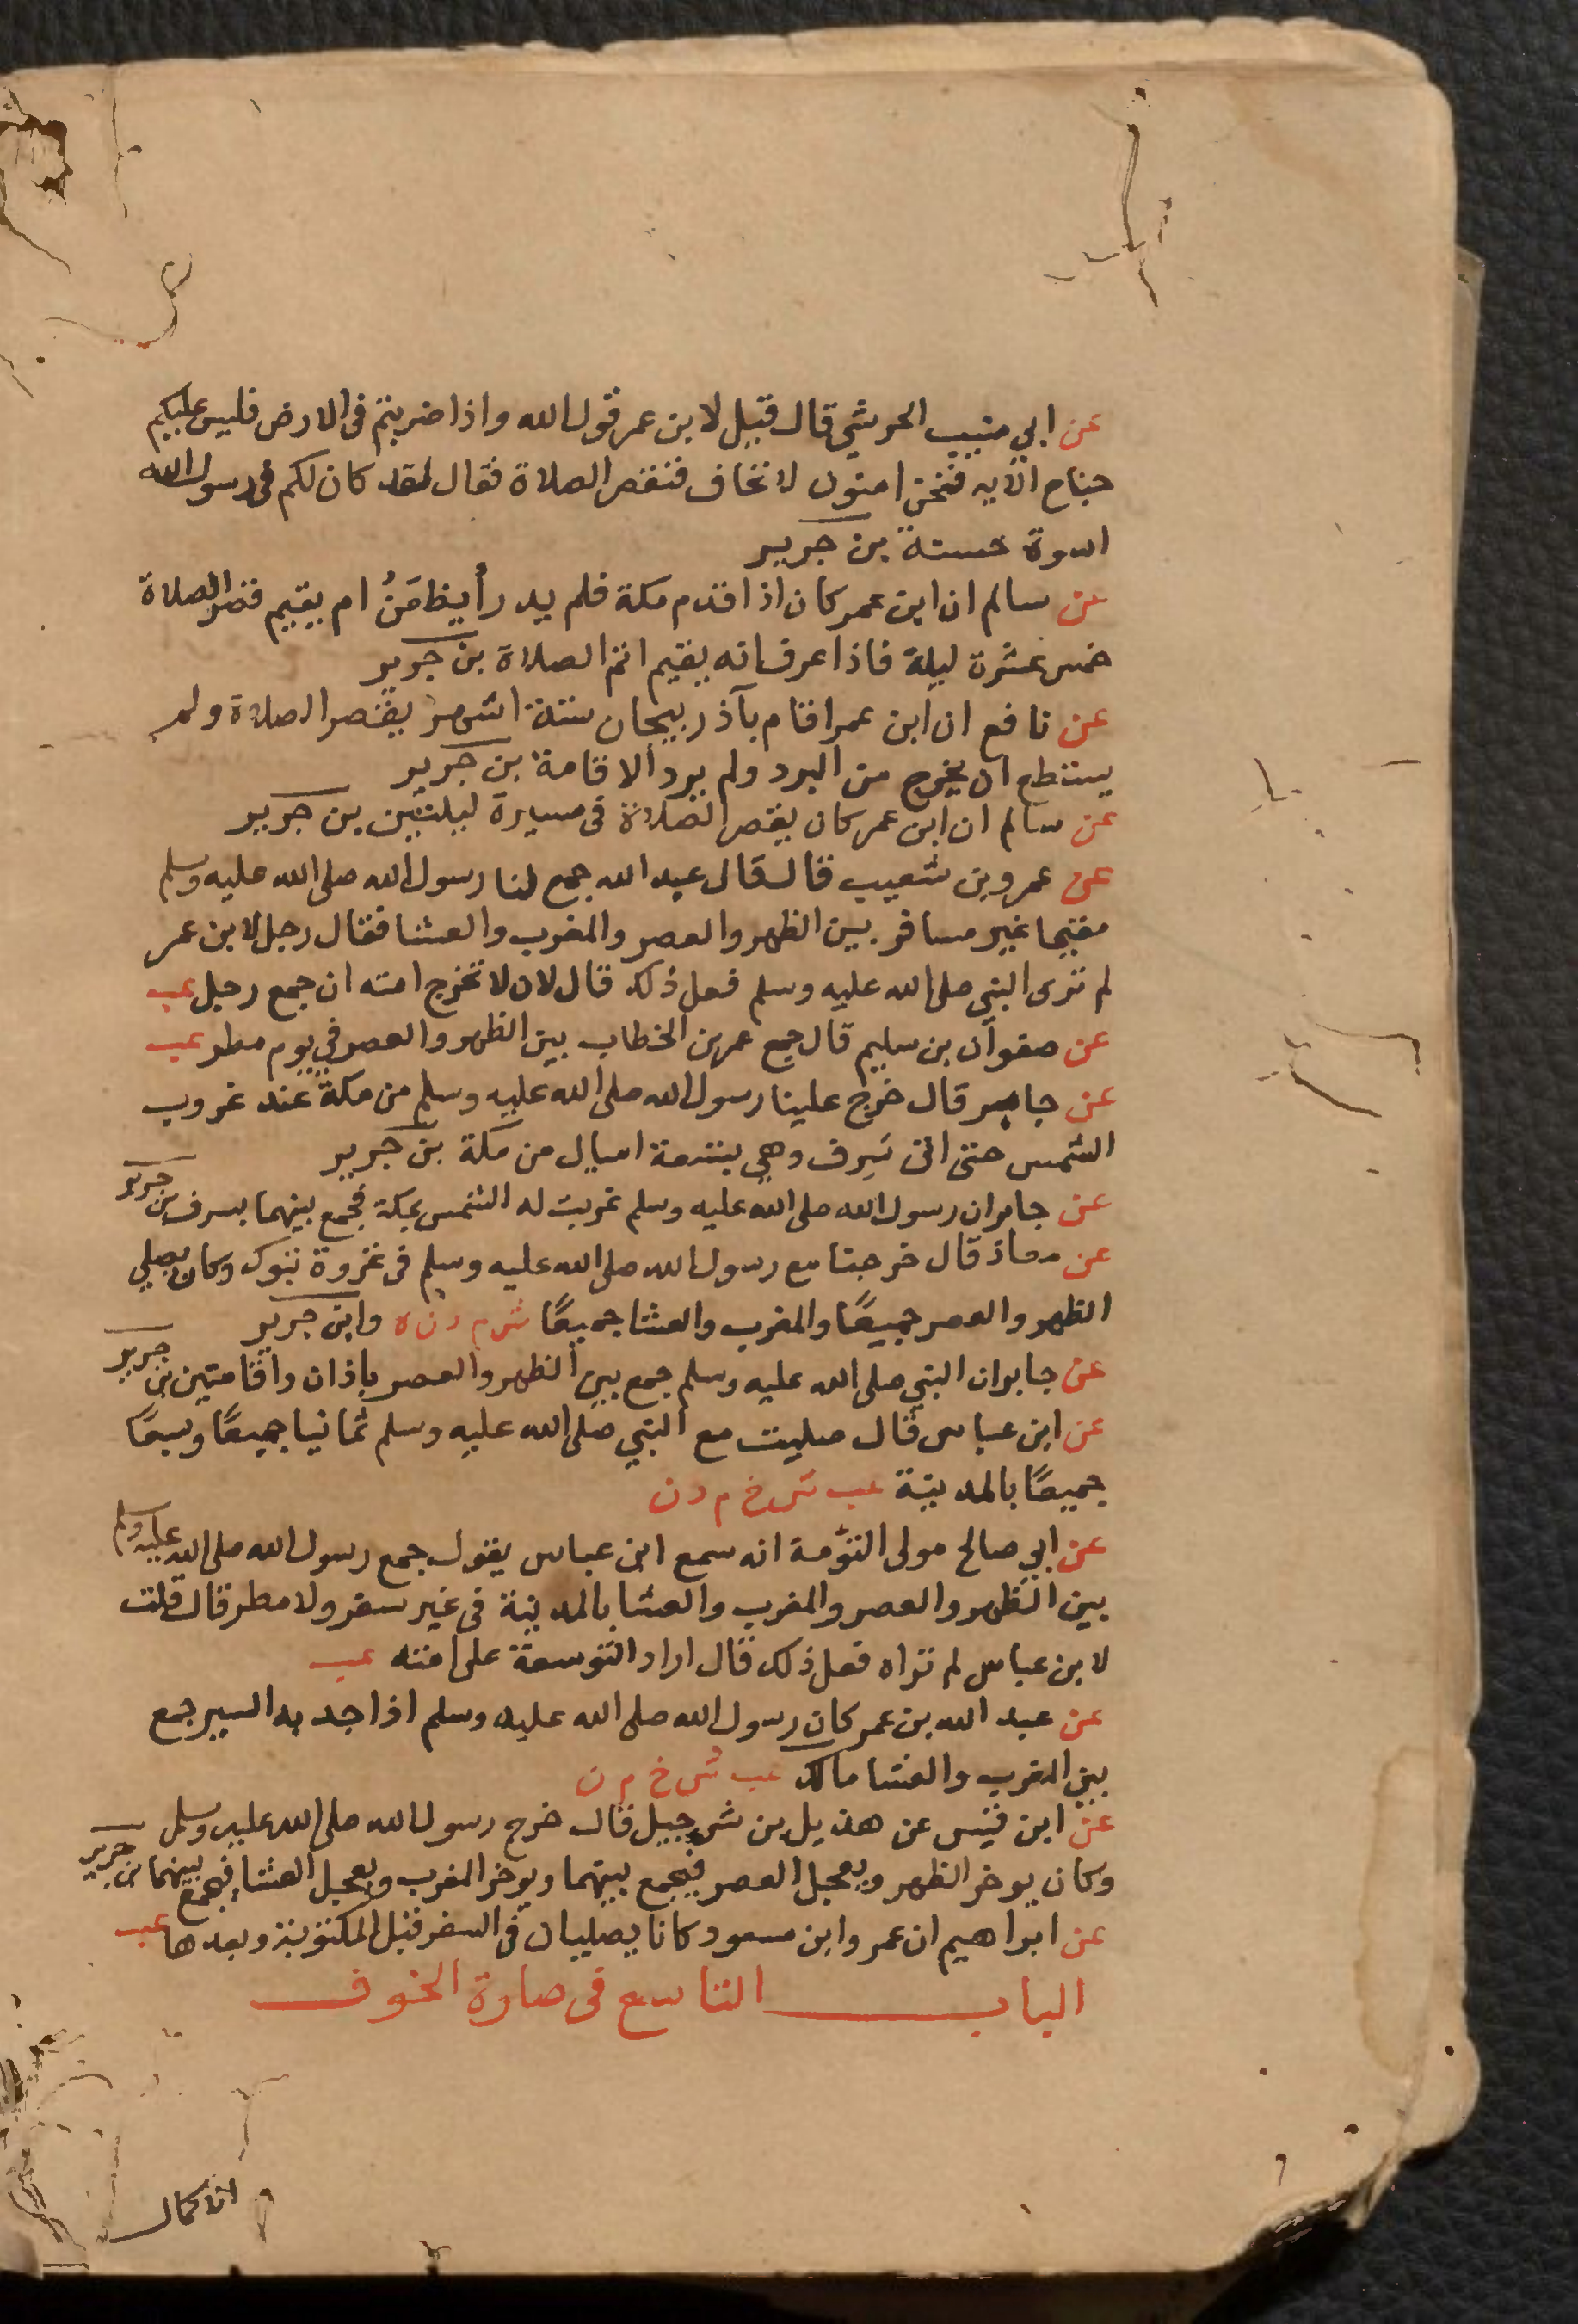 عن ابي منيب الحرشي قال قيل لابن عمر قول الله واذا ضربتم في الارض فليس عليكم
جناح الايه فنحن امنون لا نخاف فنقصر الصلاة فقال لقد كان لكم في رسول الله
اسوة حسنة بن جرير
عن سالم ان ابن عمر كان اذا قدم مكة فلم يدر أيظعَنُ ام يقيم قصر الصلاة
خمس عشرة ليلة فاذا عرف انه يقيم اتم الصلاة بن جرير
عن نافع ان ابن عمر اقام بآذربيجان ستة اشهر يقصر الصلاة ولم
يستطع ان يخرج من البرد ولم يرد الاقامة بن جرير
عن سالم ان ابن عمر كان يقصر الصلاة في مسيرة ليلتين بن جرير
عن عمرو بن شعيب قال قال عبد الله جمع لنا رسول الله صلى الله عليه وسلم
مقيما غير مسافر بين الظهر والعصر والمغرب والعشا فقال رجل لابن عمر
لم ترى النبي صلى الله عليه وسلم فعل ذلك قال لان لا تخرج امته ان جمع رجل عب
عن صفوان بن سليم قال جمع عمر بن الخطاب بين الظهر والعصر في يوم مطر عب
عن جابر قال خرج علينا رسول الله صلى الله عليه وسلم من مكة عند غروب
الشمس حتى اتى سَرِف وهي بتسعة اميال من مكة بن جرير
عن جابر ان رسول الله صلى الله عليه وسلم غربت له الشمس بمكة فجمع بينهما بسرف بن جرير
عن معاذ قال خرجنا مع رسول الله صلى الله عليه وسلم في غزوة تبوك وكان يصلي
الظهر والعصر جميعًا والمغرب والعشا جميعًا ش م د ن ه وابن جرير
عن جابر ان النبي صلى الله عليه وسلم جمع بين الظهر والعصر باذان واقامتين بن جرير
عن ابن عباس قال صليت مع النبي صلى الله عليه وسلم ثمانيا جميعًا وسبعًا
جميعًا بالمدينة عب ش خ م د ن
عن ابي صالح مولى التؤمة انه سمع ابن عباس يقول جمع رسول الله صلى الله عليه وسلم
بين الظهر والعصر والمغرب والعشا بالمدينة في غير سفر ولا مطر قال قلت
لابن عباس لم تراه فعل ذلك قال اراد التوسعة على امته عب
عن عبد الله بن عمر كان رسول الله صلى الله عليه وسلم اذا جد به السير جمع
بين المغرب والعشا مالك عب ش خ م ن
عن ابن قيس عن هذيل بن شرحبيل قال خرج رسول الله صلى الله عليه وسلم
وكان يوخر الظهر ويعجل العصر فيجمع بينهما ويوخر المغرب ويعجل العشا فيجمع بينهما بن جرير
عن ابراهيم ان عمر وابن مسعود كانا يصليان في السفر قبل المكتوبة وبعدها عب
الباب التاسع في صلاة الخوف